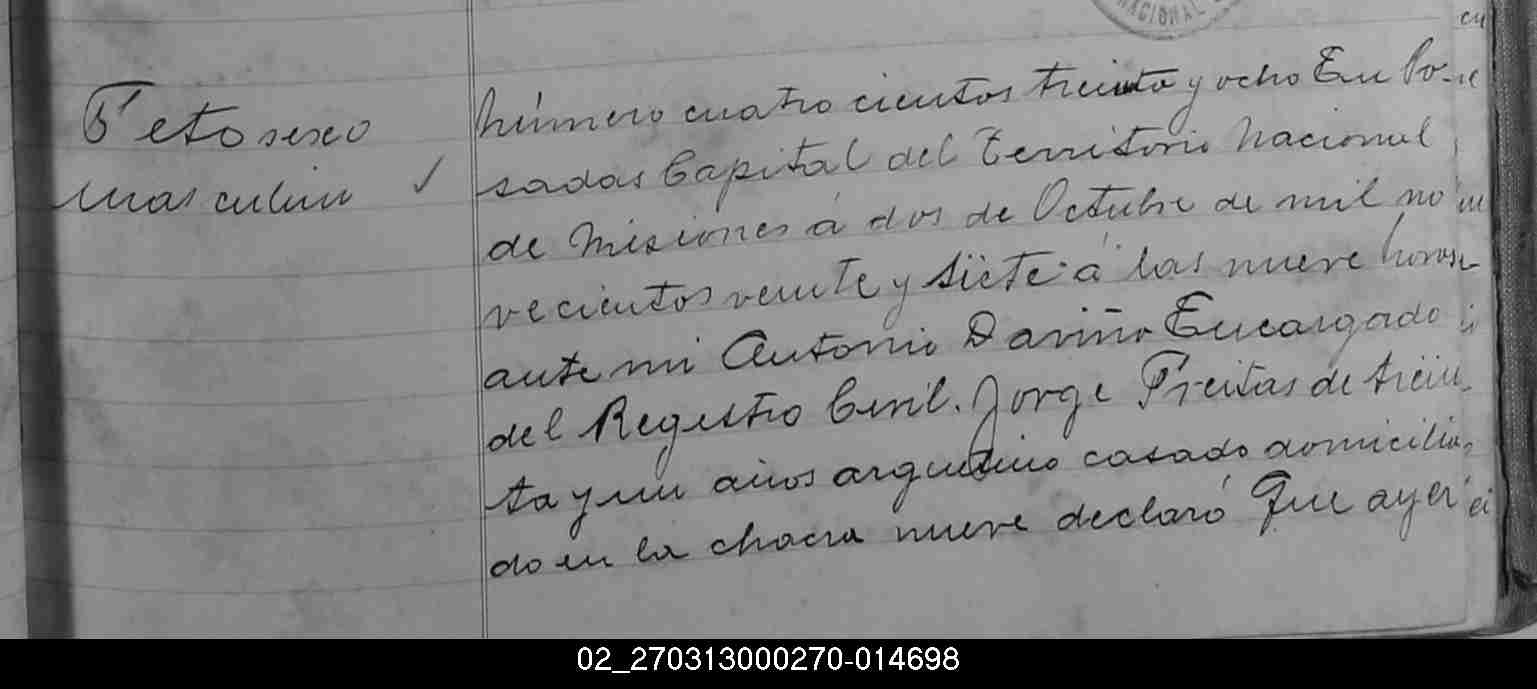 NACIONAL
Feto sexo
masculino ✓
Número cuatro cientos treinta y ocho En Po-
sadas Capital del Territorio Nacional
de Misiones á dos de Octubre de mil no
vecientos veinte y siete á las nueve horas
ante mi Antonio Dariño Encargado
del Registro Civil. Jorge Freitas de trein
ta y un años argentino casado domicilia
do en la chacra nueve declaró Que ayer
02_270313000270-014698